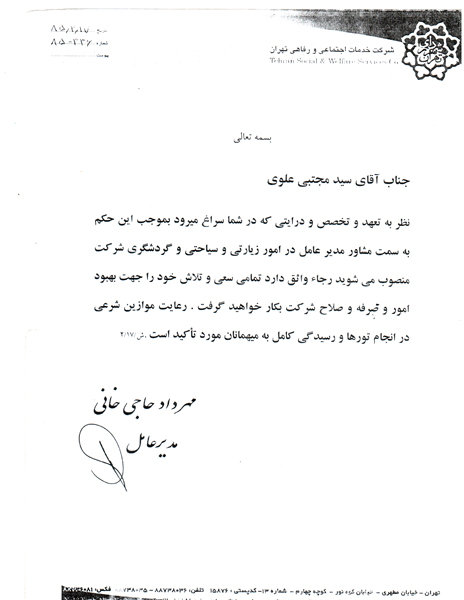 ۸۵/۲/۱۷
شماره ۸۵۰۳۳۶
پیوست
شرکت خدمات اجتماعی و رفاهی تهران
Tehran Social & Welfare Services Co
بسمه تعالی
جناب آقای سید مجتبی علوی
نظر به تعهد و تخصص و درایتی که در شما سراغ میرود بموجب این حکم
به سمت مشاور مدیر عامل در امور زیارتی و سیاحتی و گردشگری شرکت
منصوب می شوید رجاء واثق دارد تمامی سعی و تلاش خود را جهت بهبود
امور و صرفه و صلاح شرکت بکار خواهید گرفت . رعایت موازین شرعی
در انجام تورها و رسیدگی کامل به میهمانان مورد تأکید است .ش/۲/۱۷
مهرداد حاجی خانی
مدیرعامل
تهران - خیابان مطهری - خیابان کوه نور - کوچه چهارم - شماره ۱۳ - کدپستی: ۱۵۸۷۶ تلفن: ۸۸۷۳۸۰۳۶ - ۸۸۷۳۸۰۳۵ فکس: